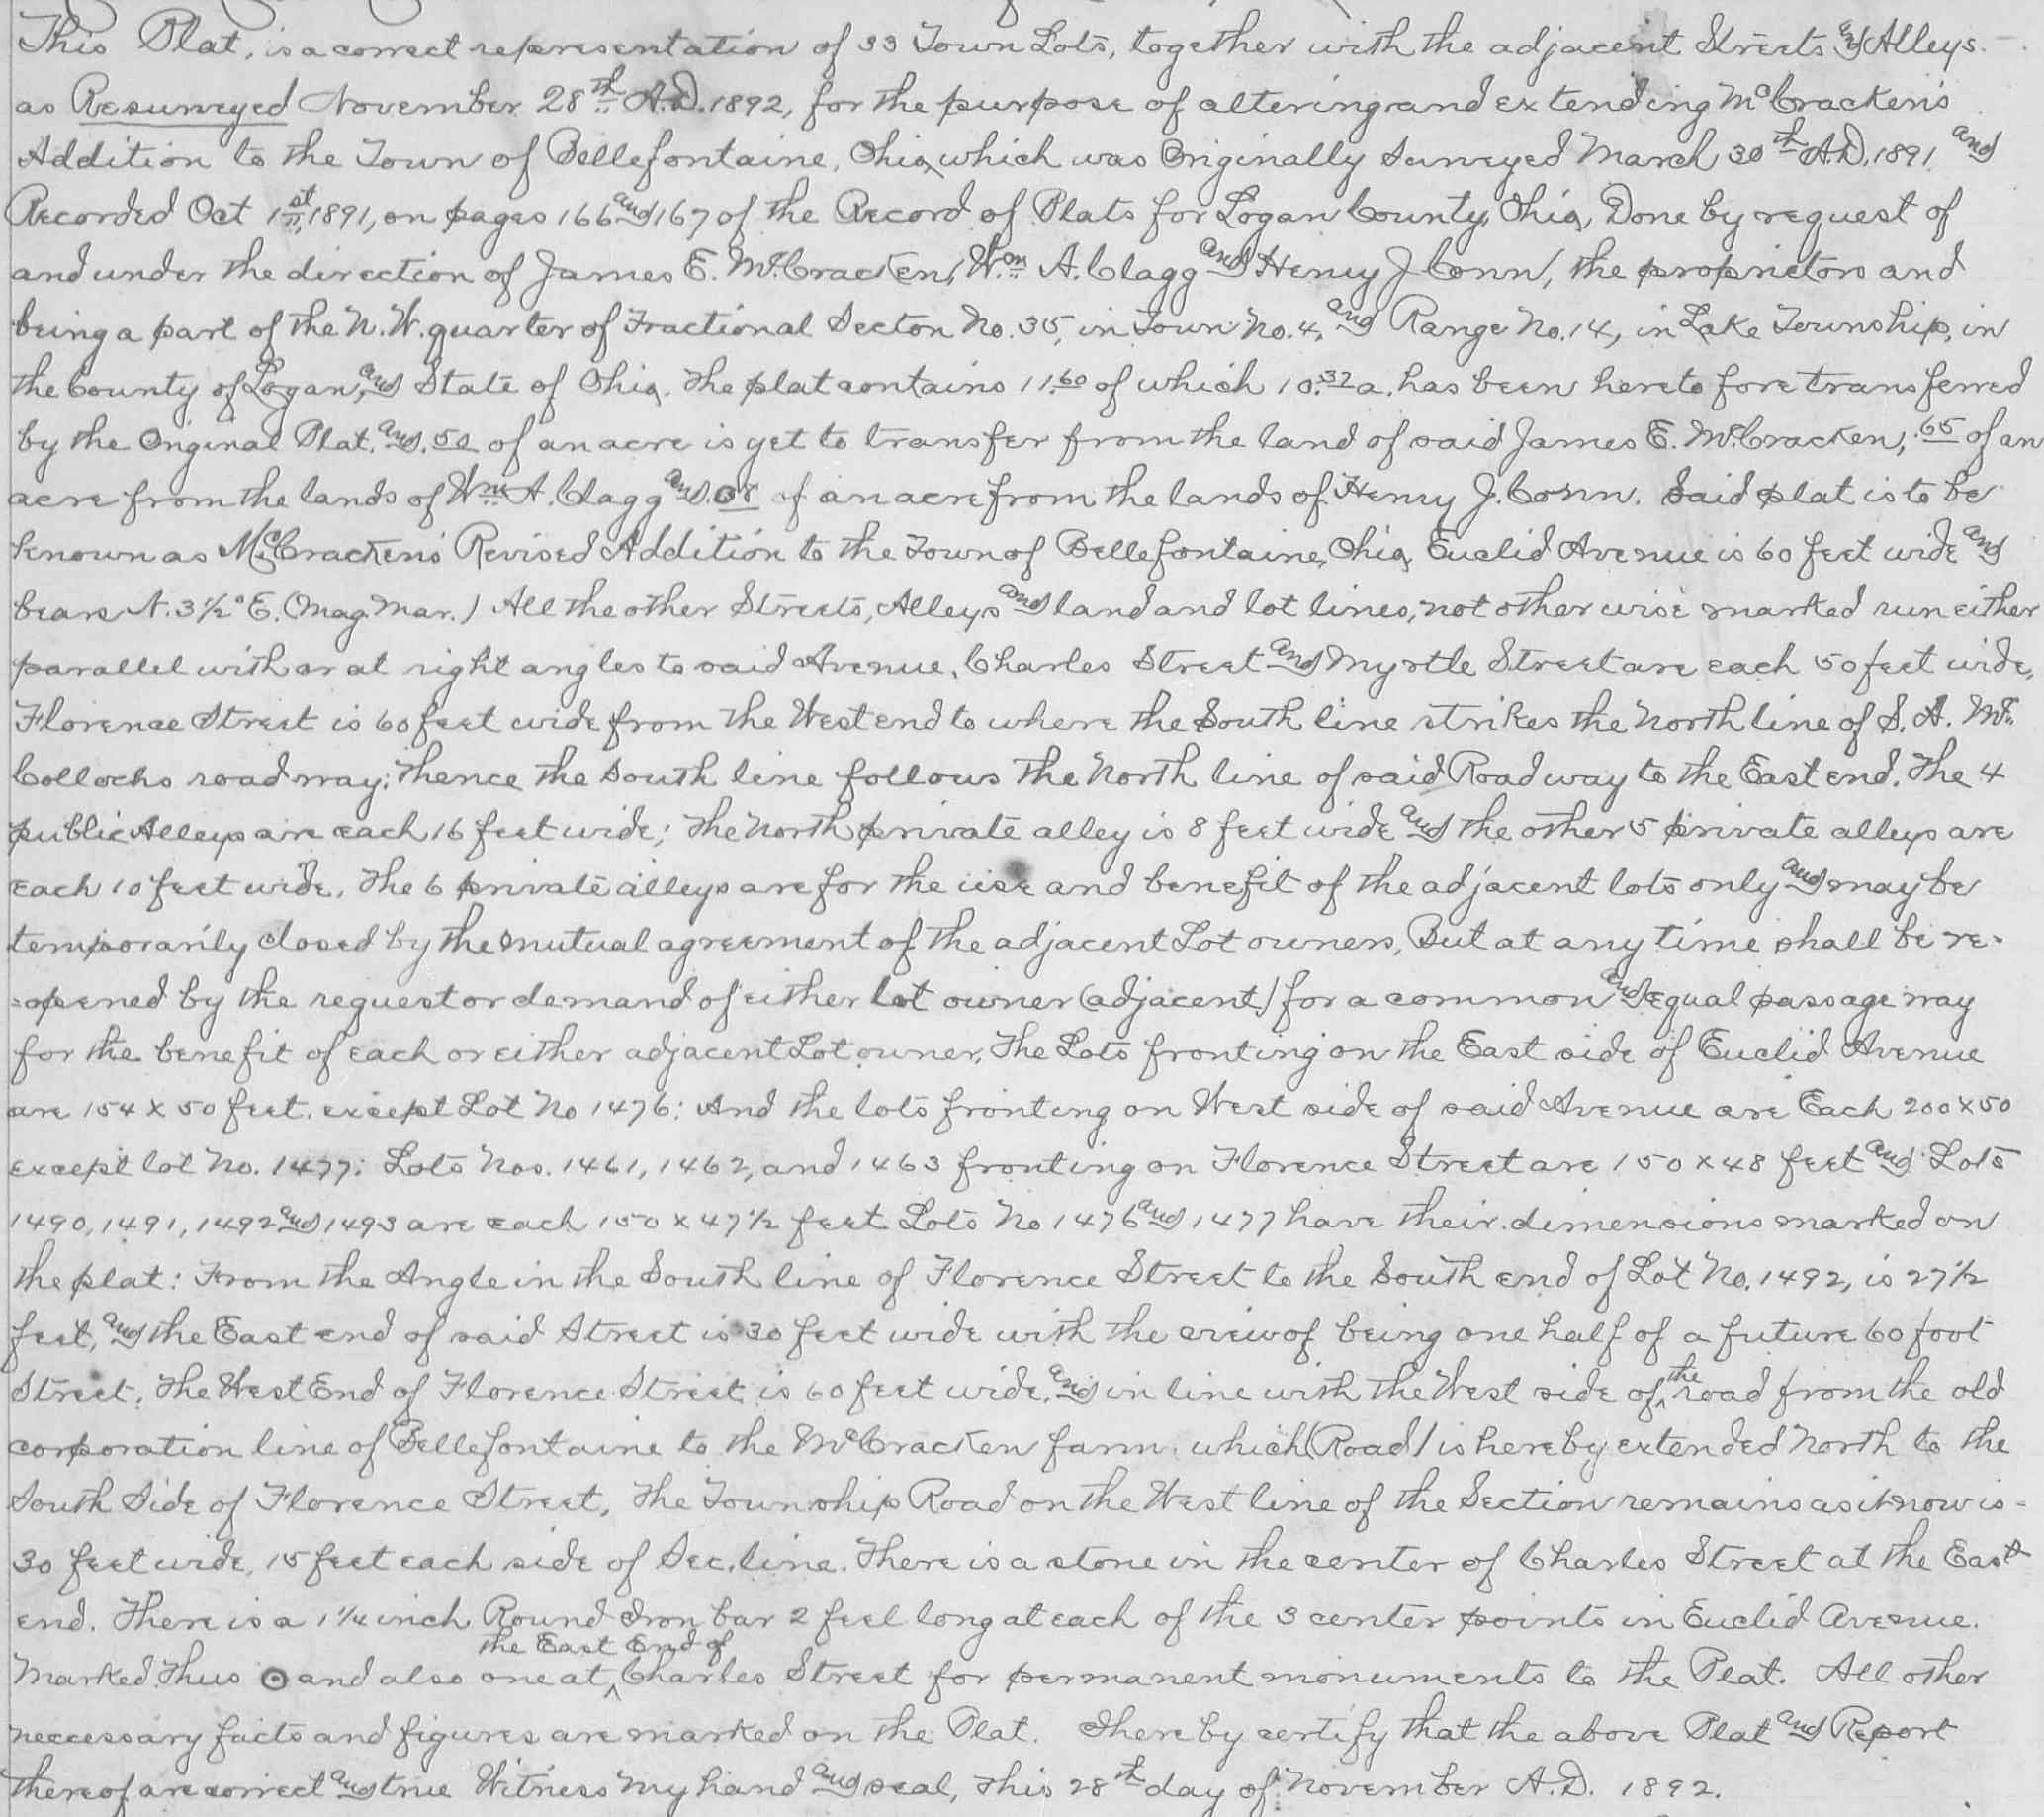 This Plat, is a correct representation of 33 Town Lots, together with the adjacent Streets and Alleys.
as Resurveyed November 28th A.D. 1892, for the purpose of altering and extending McCracken's
Addition to the Town of Bellefontaine, Ohio, which was Originally Surveyed March 30th A.D. 1891 and
Recorded Oct 1st, 1891, on pages 166 and 167 of the Record of Plats for Logan County, Ohio, Done by request of
and under the direction of James E. McCracken, Wm A. Clagg and Henry J Conn, the proprietors and
being a part of the N.W. quarter of Fractional Secton No. 35, in Town No. 4, and Range No. 14, in Lake Township, in
the County of Logan, and State of Ohio. The plat contains 11.60 of which 10.37 a. has been heretofore transferred
by the Original Plat. and .50 of an acre is yet to transfer from the land of said James E. McCracken, .65 of an
acre from the lands of Wm A. Clagg and .08 of an acre from the lands of Henry J. Conn. Said plat is to be
known as McCracken's Revised Addition to the Town of Bellefontaine, Ohio, Euclid Avenue is 60 feet wide and
bears N. 3 1/2° E. (Mag. Mar.) All the other Streets, Alleys and land and lot lines, not otherwise marked run either
parallel with or at right angles to said Avenue. Charles Street and Myrtle Street are each 50 feet wide,
Florence Street is 60 feet wide from the West end to where the South line strikes the North line of S. A. Mc
Collochs roadway; Thence the South line follows the North line of said Roadway to the East end. The 4
public Alleys are each 16 feet wide; The North private alley is 8 feet wide and the other 5 private alleys are
each 10 feet wide. The 6 private alleys are for the use and benefit of the adjacent lots only and may be
temporarily closed by the mutual agreement of the adjacent Lot owners, But at any time shall be re-
=opened by the request or demand of either lot owner (adjacent) for a common and equal passage way
for the benefit of each or either adjacent Lot owner, The Lots fronting on the East side of Euclid Avenue
are 154 x 50 feet. except Lot No 1476: And the lots fronting on West side of said Avenue are Each 200 x 50
except lot No. 1477: Lots Nos. 1461, 1462, and 1463 fronting on Florence Street are 150 x 48 feet and Lots
1490, 1491, 1492 and 1493 are each 150 x 47 1/2 feet Lots No 1476 and 1477 have their dimensions marked on
the plat: From the Angle in the South line of Florence Street to the South end of Lot No. 1492, is 27 1/2
feet, and the East end of said Street is 30 feet wide with the view of being one half of a future 60 foot
Street. The West End of Florence Street is 60 feet wide. and in line with the West side of the road from the old
corporation line of Bellefontaine to the McCracken farm. which (Road) is hereby extended North to the
South Side of Florence Street, The Township Road on the West line of the Section remains as it now is -
30 feet wide, 15 feet each side of Sec. line. There is a stone in the center of Charles Street at the East
end. There is a 1 1/4 inch Round Iron bar 2 feet long at each of the 3 center points in Euclid Avenue.
Marked Thus ⊙ and also one at the East End of Charles Street for permanent monuments to the Plat. All other
neccessary facts and figures are marked on the Plat. I hereby certify that the above Plat and Report
thereof are correct and true Witness My hand and seal, This 28th day of November A.D. 1892.